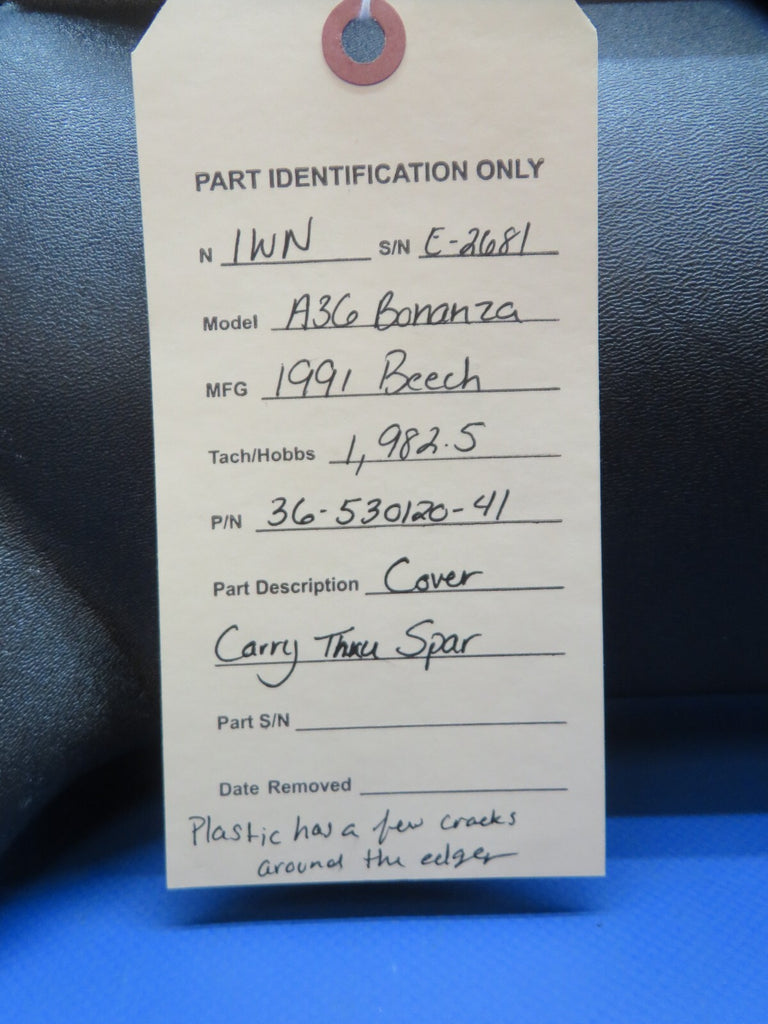 PART IDENTIFICATION ONLY
N 1WN S/N E-2681
Model A36 Bonanza
MFG 1991 Beech
Tach/Hobbs 1,982.5
P/N 36-530120-41
Part Description Cover
Carry Thru Spar
Part S/N
Date Removed
Plastic has a few cracks
around the edges